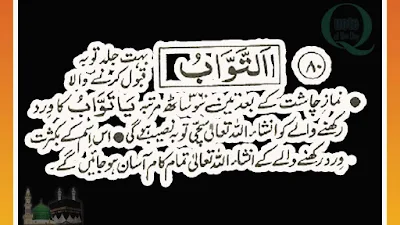 ۸۰
اَلتَّوَّابُ
بہت جلد توبہ
قبول کرنے والا
• نمازِ چاشت کے بعد تین سو ساٹھ مرتبہ یَا تَوَّابُ کا ورد
رکھنے والے کو انشاء اللہ تعالیٰ سچی توبہ نصیب ہوگی • اس اسم کے بکثرت
ورد رکھنے والے کے انشاء اللہ تعالیٰ تمام کام آسان ہو جائیں گے۔